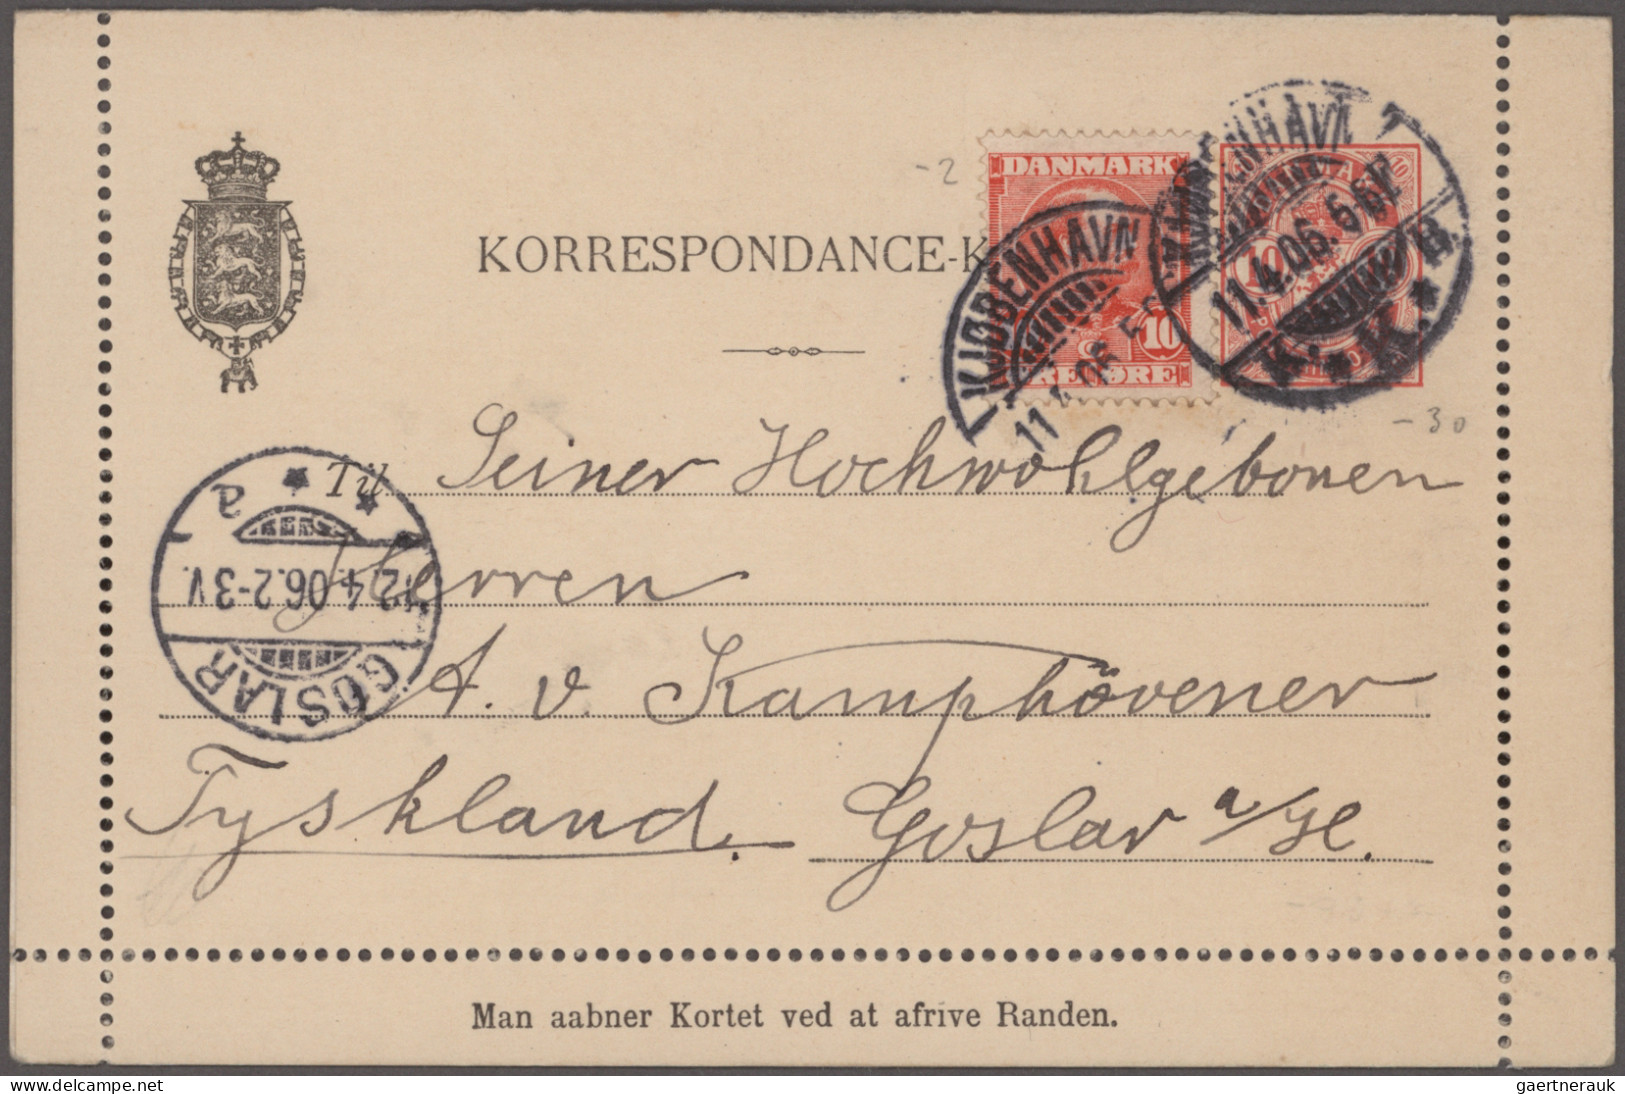 DANMARK
10
KORRESPONDANCE-K
KJØBENHAVN
11.4.06
KJØBENHAVN
11.4.06. 6
K. K. B.
10
ØRE
-2
-30
Til Seiner Hochwohlgeboren
Herren
A. v. Kamphövener
Tyskland. Goslar a/H.
GOSLAR
12.4.06.2-3V.
a
Man aabner Kortet ved at afrive Randen.
www.delcampe.net
gaertnerauk